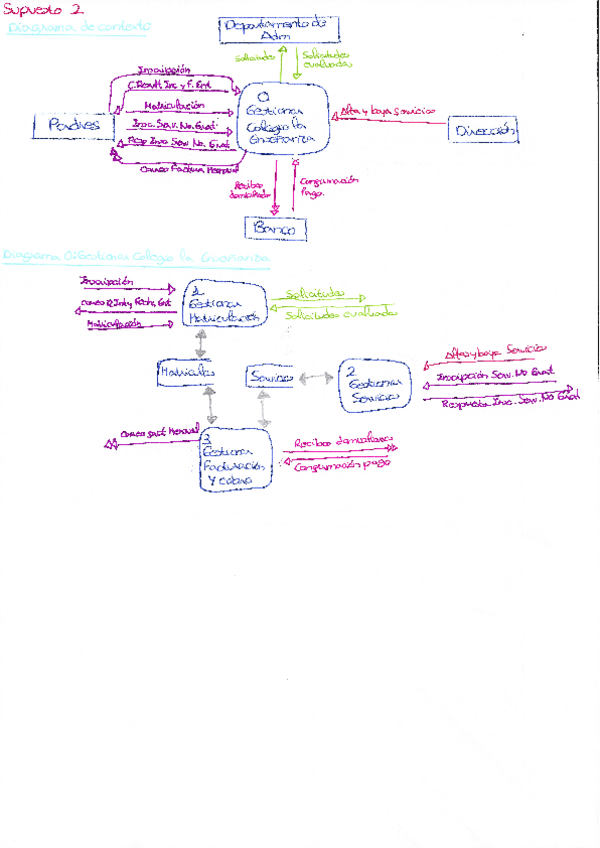 Supuesto 2
Diagrama de contexto
Departamento de
Adm
Solicitudes
Solicitudes
evaluada
Inscripción
C. Result. Inc y F. Ent
Matriculación
Insc. Serv. No. Grat
Resp Insc Serv No. Grat
Correo Factura Mensual
Padres
0
Gestionar
Colegio la
Enseñanza
Alta y baja Servicios
Dirección
Recibos
domiciliados
Confirmación
Pago.
Banco
Diagrama 0: Gestionar Colegio la Enseñanza
Inscripción
Matriculación
1
Gestionar
Matriculación
Solicitudes
Solicitudes evaluada
Matrículas
Servicios
2
Gestionar
Servicios
Altas y baja Servicio
Inscripción Serv. No Grat
Respuesta Insc. Serv. NO Grat
Mensual
3
Gestionar
Facturación
Y cobro
Recibos domiciliados
Confirmación pago